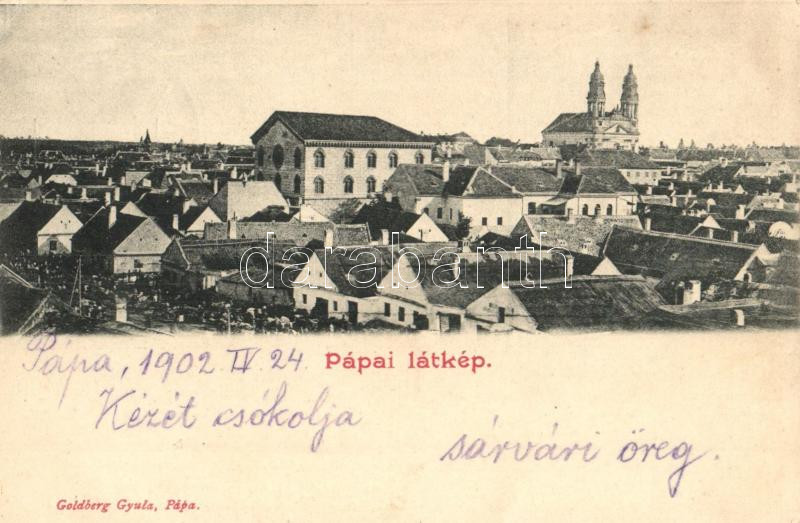 darabanth
Pápa, 1902 IV. 24. Pápai látkép.
Kézét csókolja
sárvári öreg.
Goldberg Gyula, Pápa.